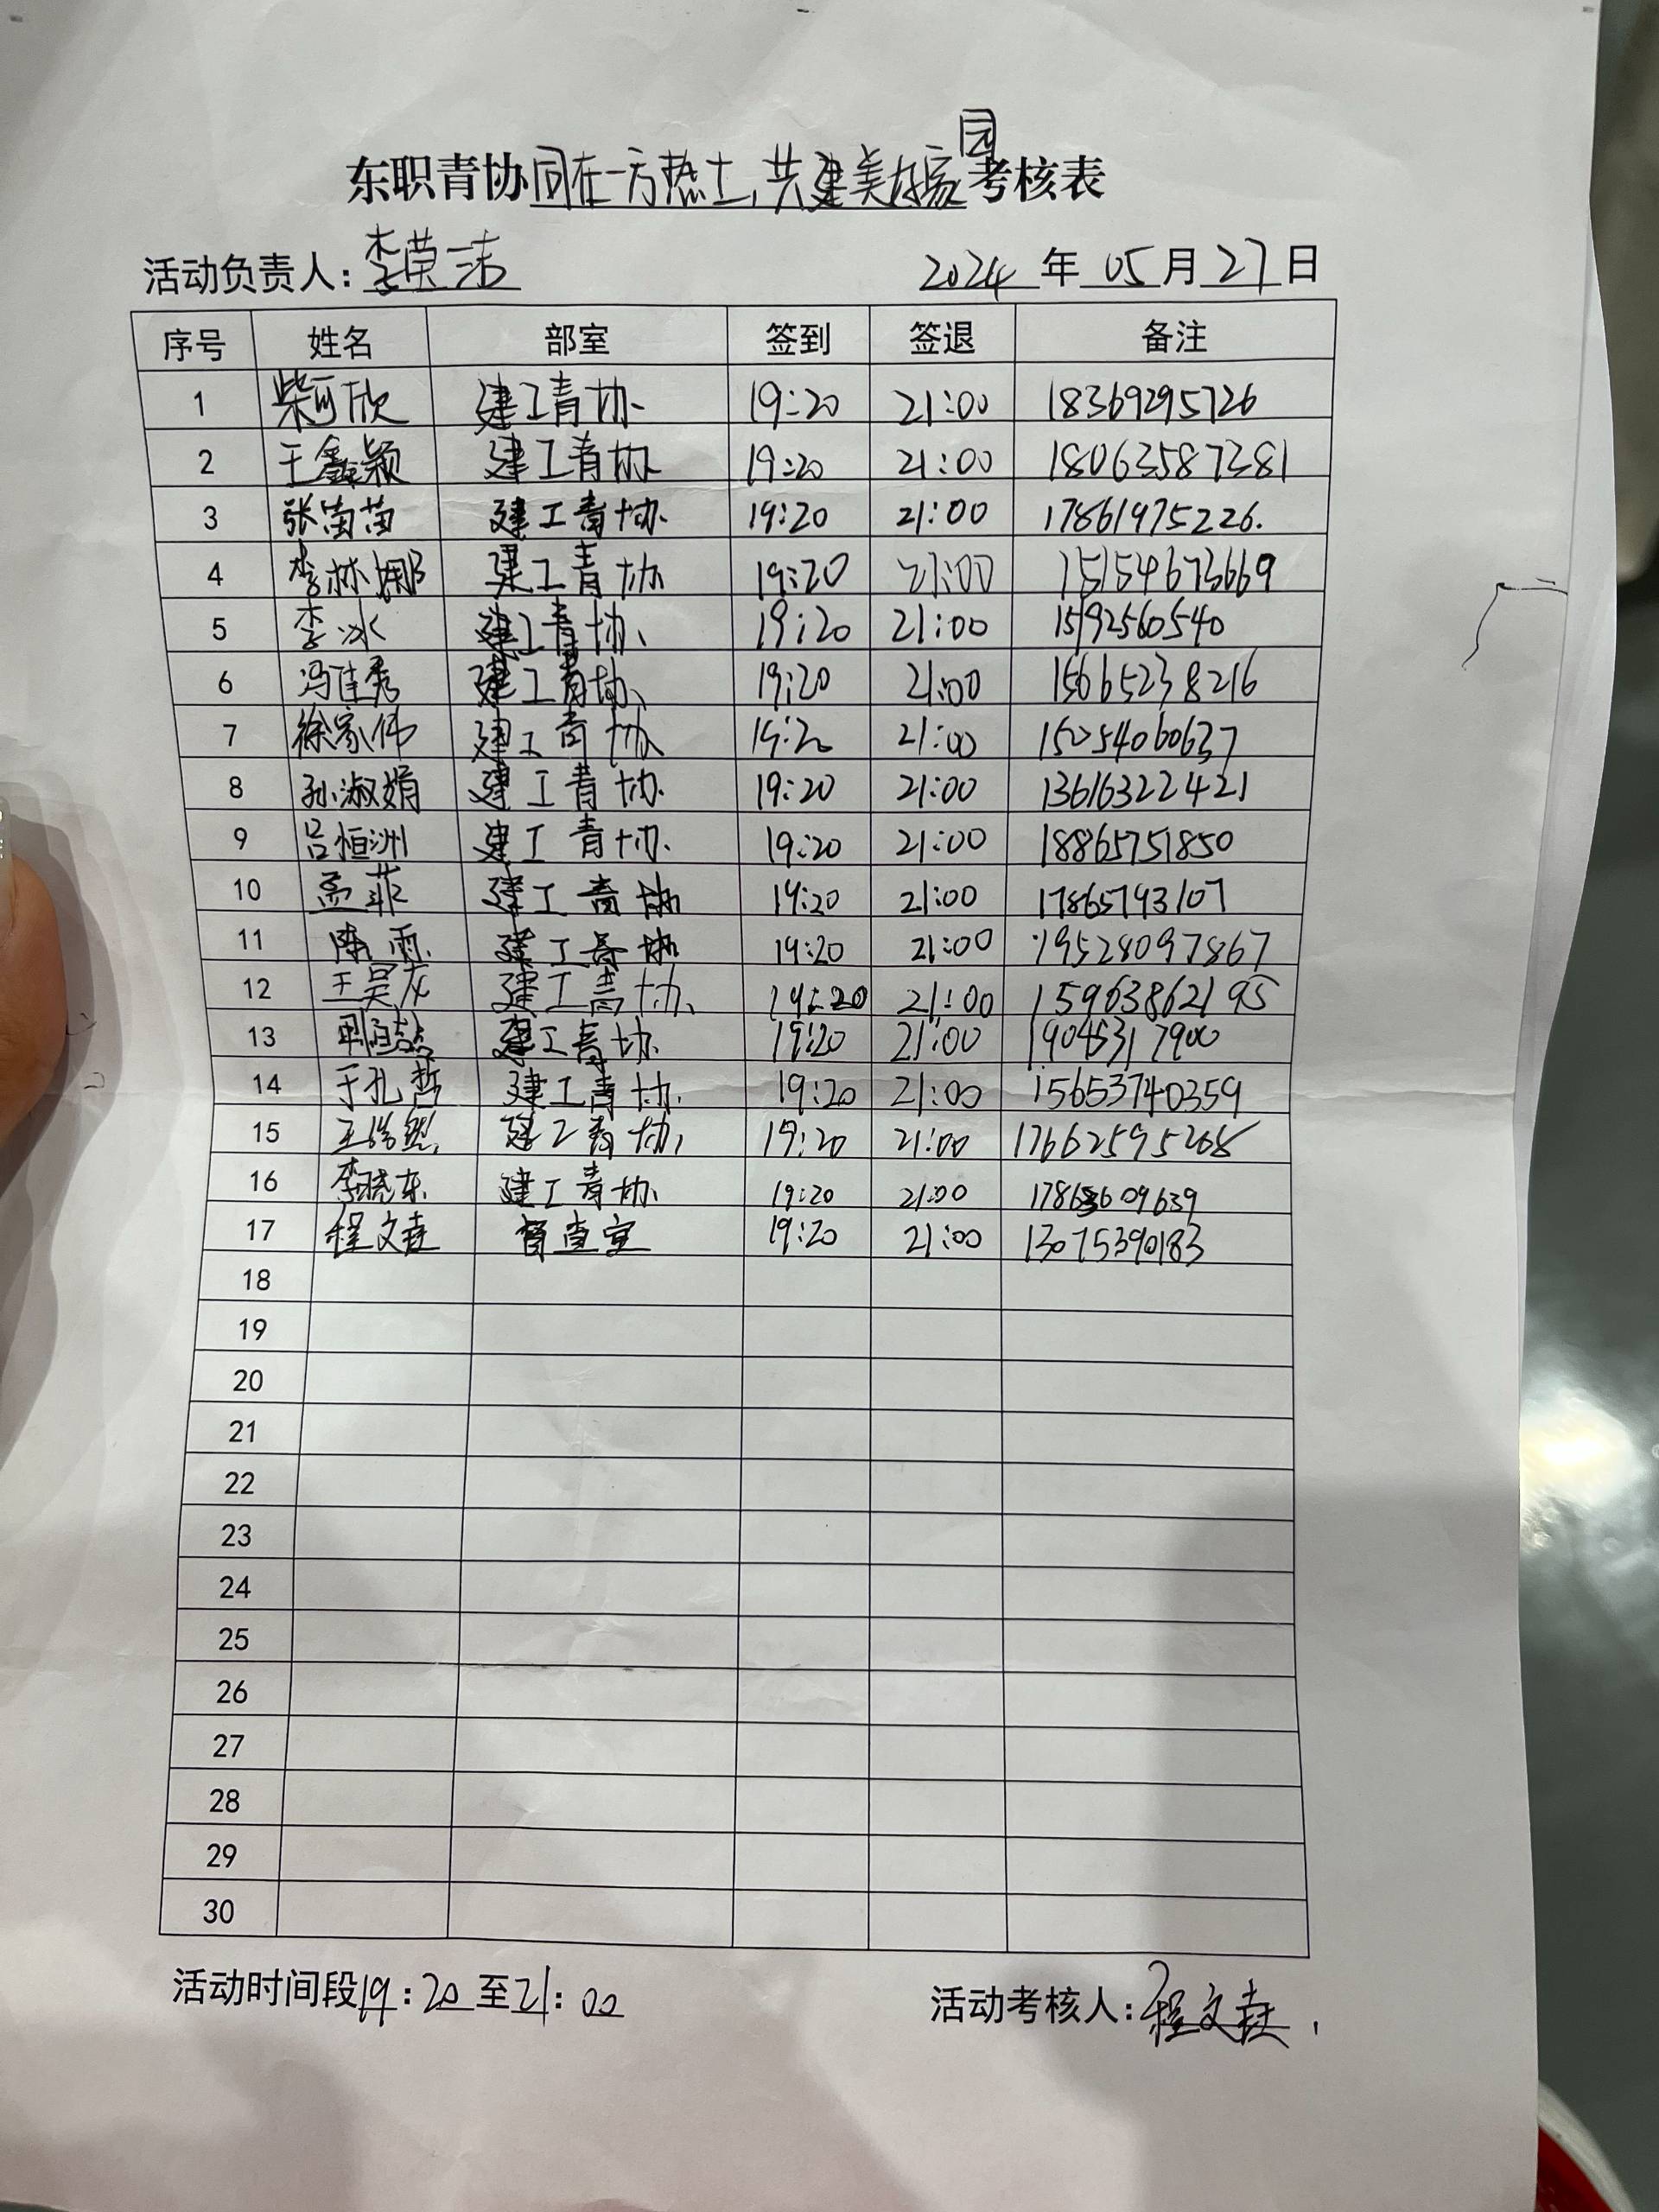 东职青协同在一方热土,共建美好家园考核表
活动负责人:李荣洁
2024年05月27日
序号 姓名 部室 签到 签退 备注
1 柴可欣 建工青协 19:20 21:00 18369295726
2 王鑫颖 建工青协 19:20 21:00 18063587381
3 张苗苗 建工青协 19:20 21:00 17861975226.
4 李林娜 建工青协 19:20 21:00 15154673669
5 李冰 建工青协 19:20 21:00 1592560540
6 冯佳秀 建工青协 19:20 21:00 15665238216
7 徐家伟 建工青协 19:20 21:00 15054060637
8 孙淑娟 建工青协 19:20 21:00 13616322421
9 吕恒洲 建工青协 19:20 21:00 18865751850
10 孟菲 建工青协 19:20 21:00 17865793107
11 陈雨 建工青协 19:20 21:00 19528097867
12 王昊 建工青协 19:20 21:00 15963862195
13 建工青协 19:20 21:00 19045317900
14 于孔哲 建工青协 19:20 21:00 15653740359
15 王 建工青协 19:20 21:00 17662595268
16 李晓东 建工青协 19:20 21:00
17 程文 督查室 19:20 21:00 13075390183
18
19
20
21
22
23
24
25
26
27
28
29
30
活动时间段19:20至21:00
活动考核人:程文